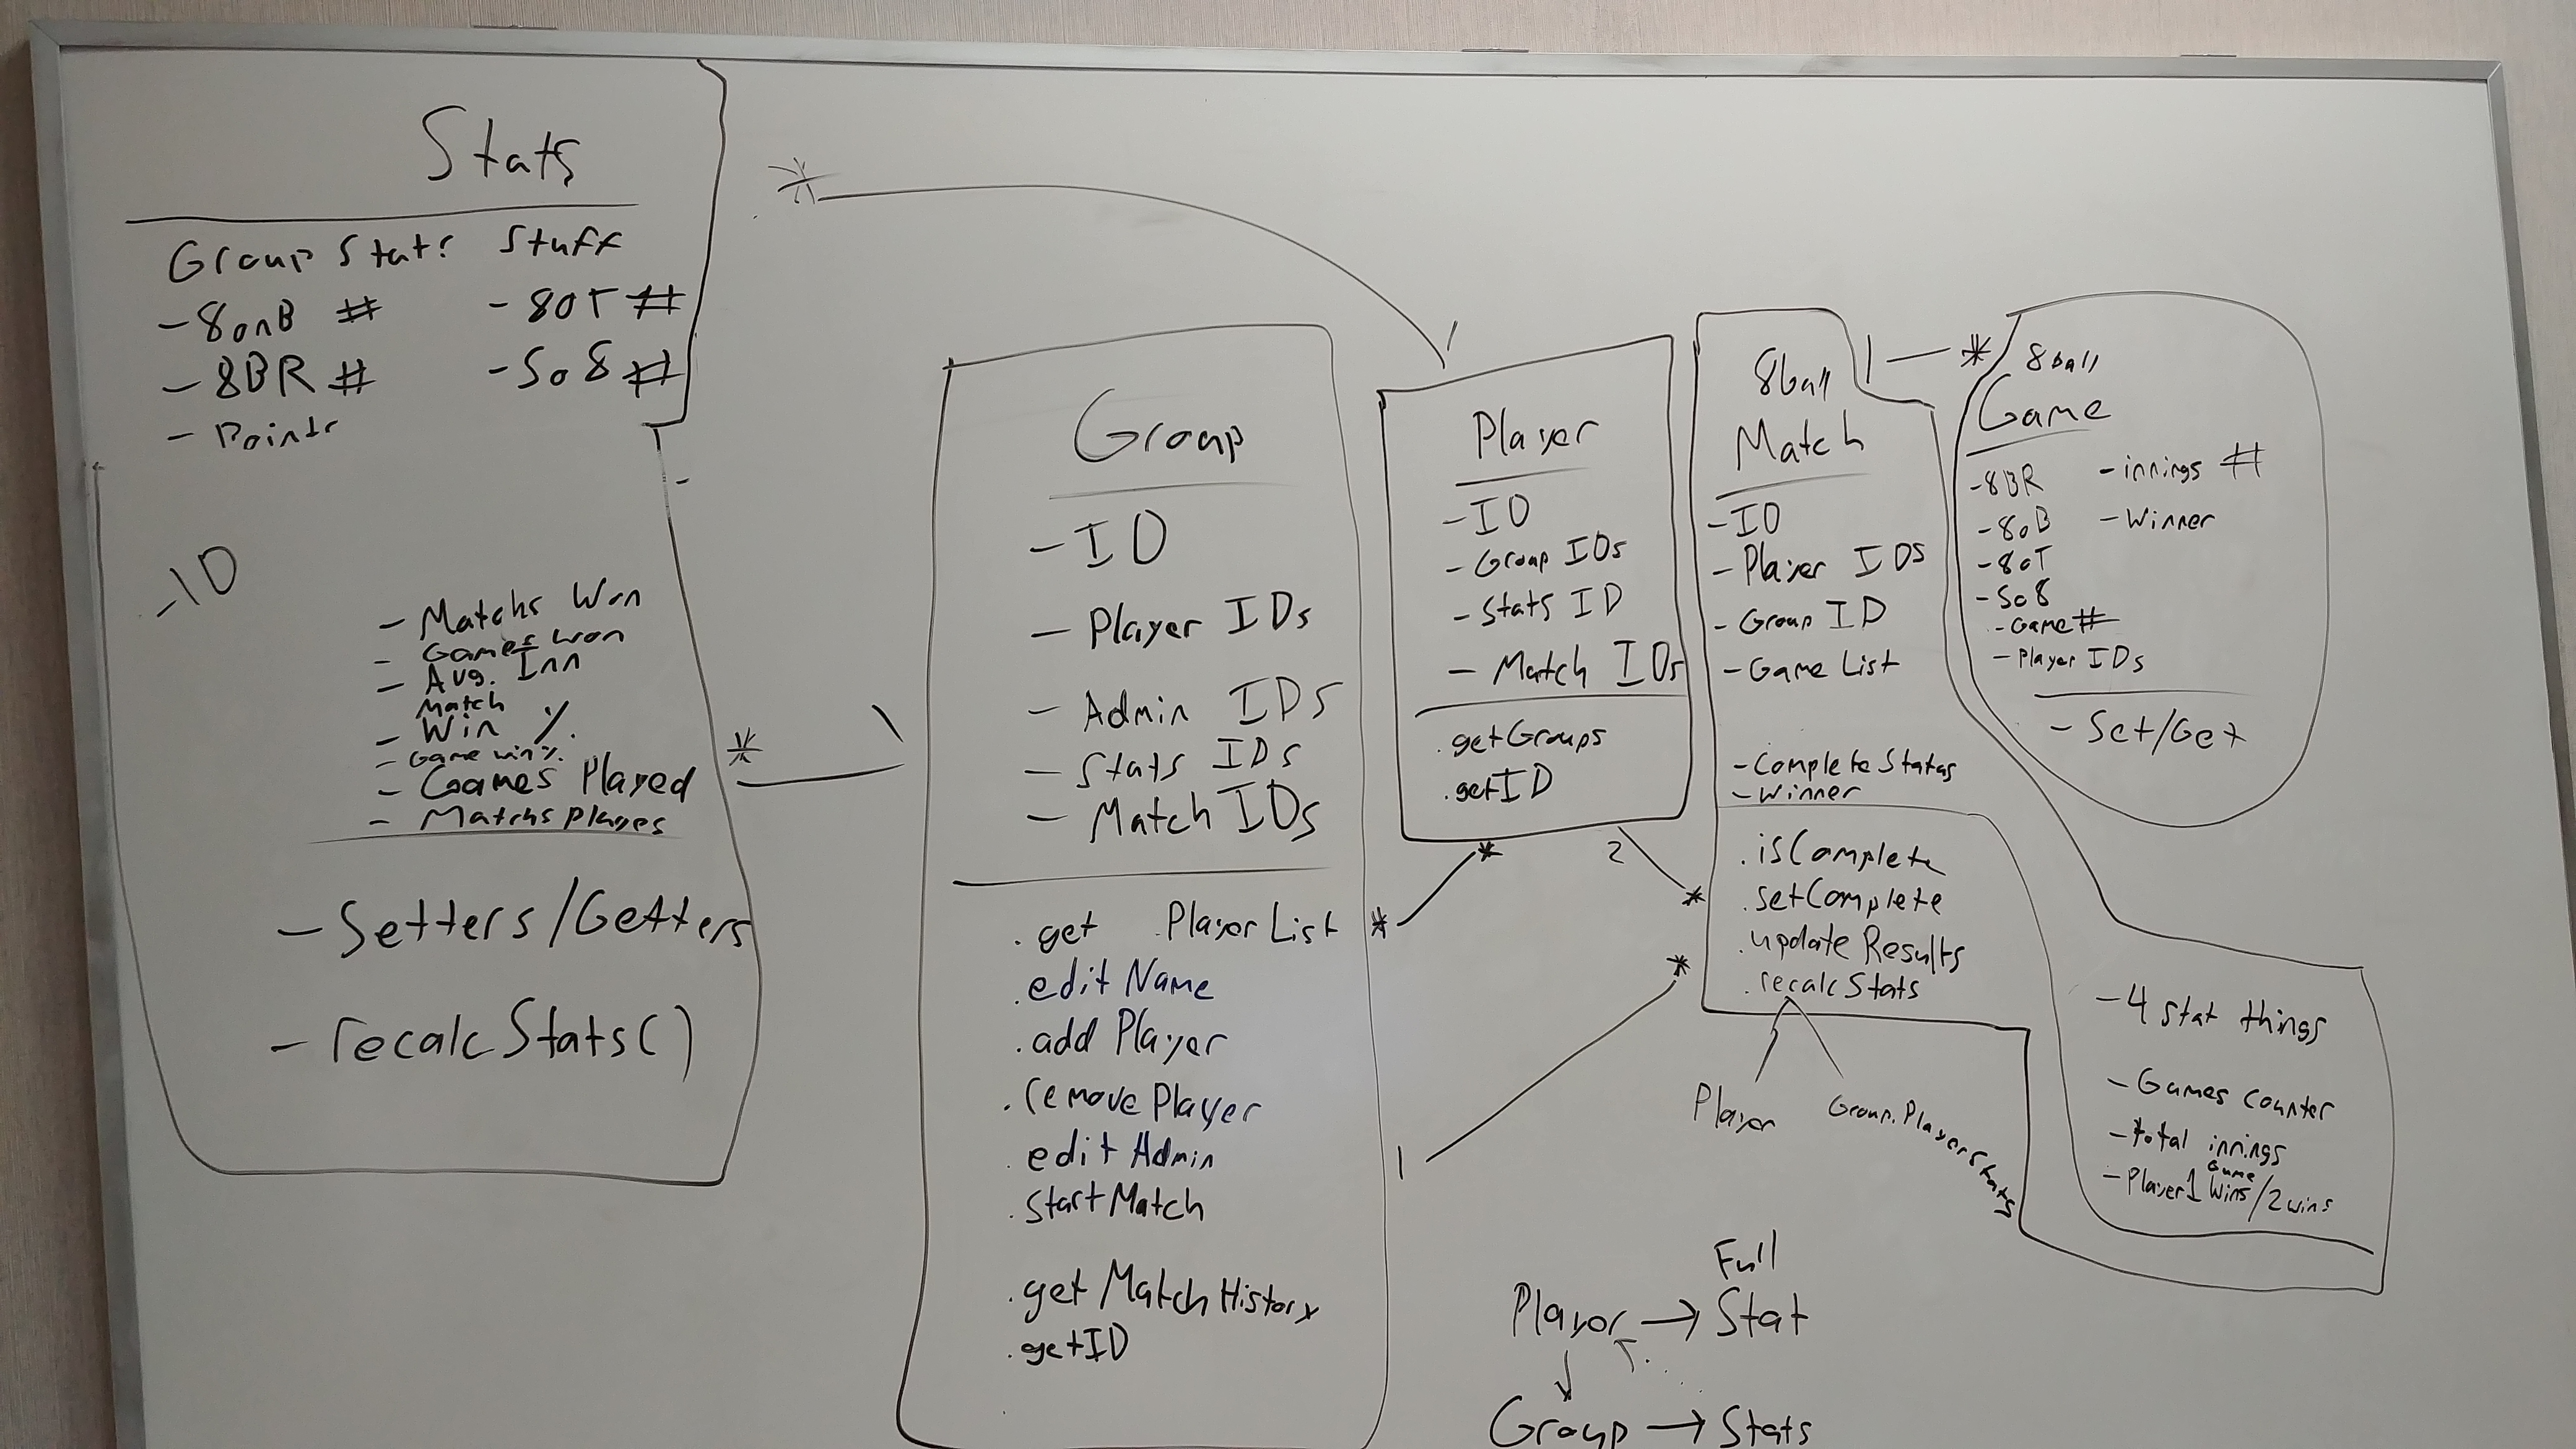 Stats
Group Stats Stuff
-8onB # -8oT #
-8BR # -So8 #
- Points
-ID
- Matchs Won
- Games won
- Avg. Inn
Match
- Win %.
- Game win%.
- Games Played
- Matchs Playes
- Setters/Getters
- recalcStats()
*
1
*
1
Group
- ID
- Player IDs
- Admin IDS
- Stats IDs
- Match IDs
.get PlayerList
.edit Name
.add Player
.remove Player
.edit Admin
.start Match
.get Match History
.getID
*
*
1
*
Player
- ID
- Group IDs
- Stats ID
- Match IDs
.getGroups
.getID
2
*
8ball
Match
- ID
- Player IDS
- Group ID
- Game List
- Complete Status
- Winner
.isComplete
.setComplete
.update Results
.recalcStats
Player
Group.PlayerStats
- 4 stat things
- Games counter
- total innings
- Player1 Game Wins/2wins
1 *
8ball
Game
-8BR - innings #
-8oB - Winner
-8oT
-So8
- Game#
- Player IDs
- Set/Get
Full
Player → Stat
Group → Stats